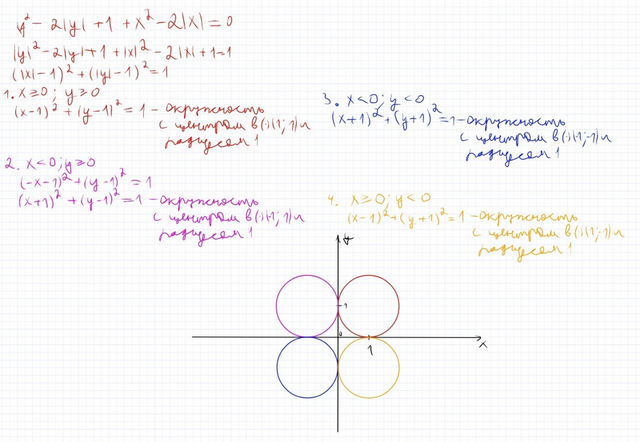 y² - 2|y| + 1 + x² - 2|x| = 0
|y|² - 2|y| + 1 + |x|² - 2|x| + 1 = 1
(|x| - 1)² + (|y| - 1)² = 1
1. x ≥ 0; y ≥ 0
(x-1)² + (y-1)² = 1 - окружность
с центром в (1; 1) и
радиусом 1
2. x < 0; y ≥ 0
(-x-1)² + (y-1)² = 1
(x+1)² + (y-1)² = 1 - окружность
с центром в (-1; 1) и
радиусом 1
3. x < 0; y < 0
(x+1)² + (y+1)² = 1 - окружность
с центром в (-1; -1) и
радиусом 1
4. x ≥ 0; y < 0
(x-1)² + (y+1)² = 1 - окружность
с центром в (1; -1) и
радиусом 1
y
1
0
1
x